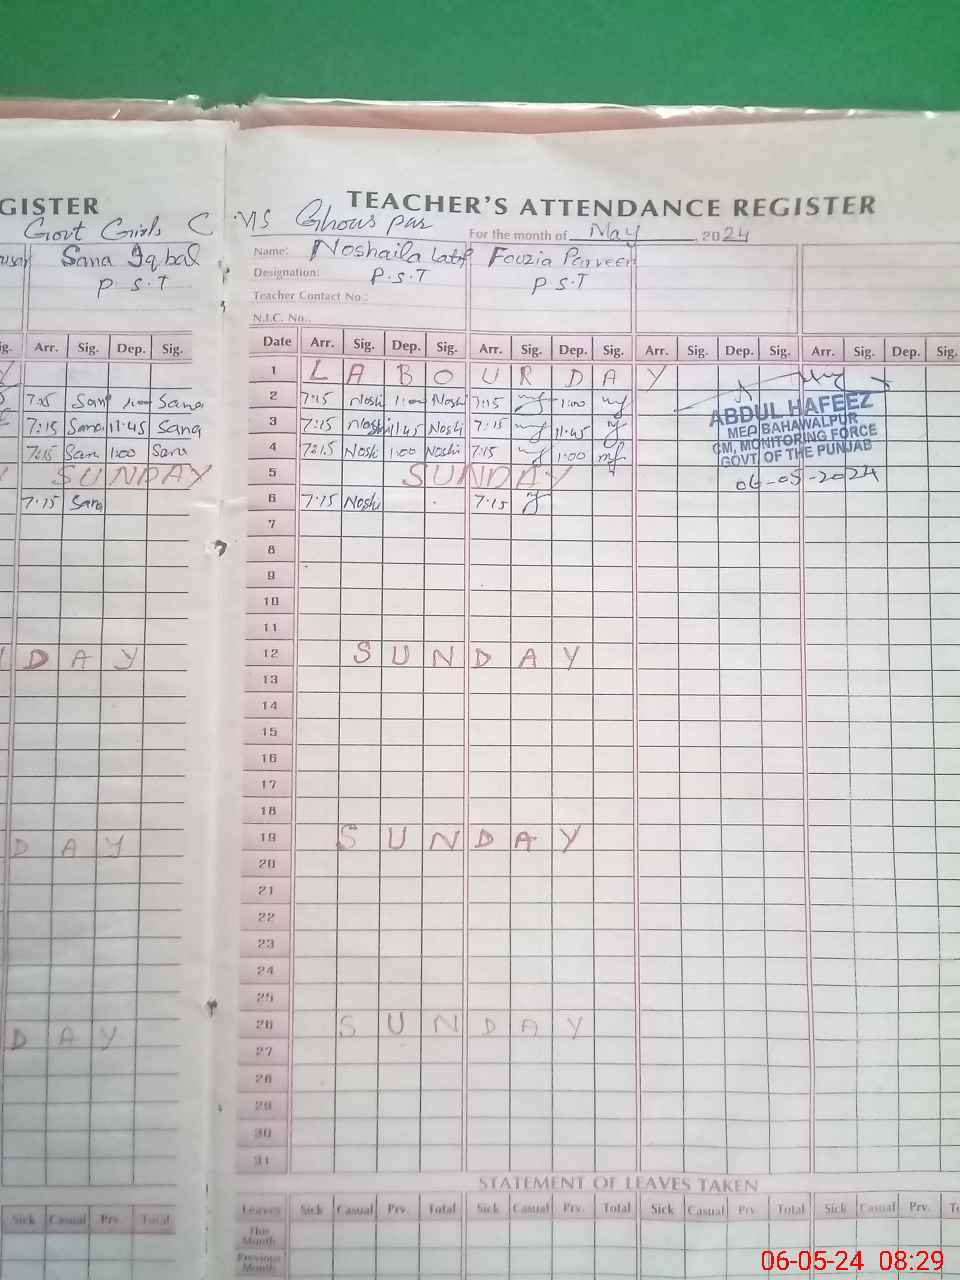 GISTER
TEACHER'S ATTENDANCE REGISTER
Govt Girls C M S Ghous pur
For the month of May, 2024
Sana Iqbal
P.S.T
Name: Noshaila Latif Fouzia Parveen
Designation: P.S.T P.S.T
Teacher Contact No.:
N.I.C. No.
ig. Arr. Sig. Dep. Sig.
Date Arr. Sig. Dep. Sig. Arr. Sig. Dep. Sig. Arr. Sig. Dep. Sig. Arr. Sig. Dep. Sig.
1 LABOUR DAY
7:15 Sana 1:00 Sana
2 7:15 Noshi 1:00 Noshi 7:15 1:00
7:15 Sana 11:45 Sana
3 7:15 Noshi 11:45 Noshi 7:15 11:45
7:15 Sana 1:00 Sana
4 7:15 Noshi 1:00 Noshi 7:15 1:00
ABDUL HAFEEZ
MEA BAHAWALPUR
CM, MONITORING FORCE
GOVT OF THE PUNJAB
06-05-2024
SUNDAY
5 SUNDAY
7:15 Sana
6 7:15 Noshi 7:15
7
8
9
10
11
DAY
12 SUNDAY
13
14
15
16
17
18
DAY
19 SUNDAY
20
21
22
23
24
25
DAY
26 SUNDAY
27
28
29
30
31
STATEMENT OF LEAVES TAKEN
Sick Casual Prv. Total
Leaves Sick Casual Prv. Total Sick Casual Prv. Total Sick Casual Prv. Total Sick Casual Prv.
This Month
Previous Month
06-05-24 08:29